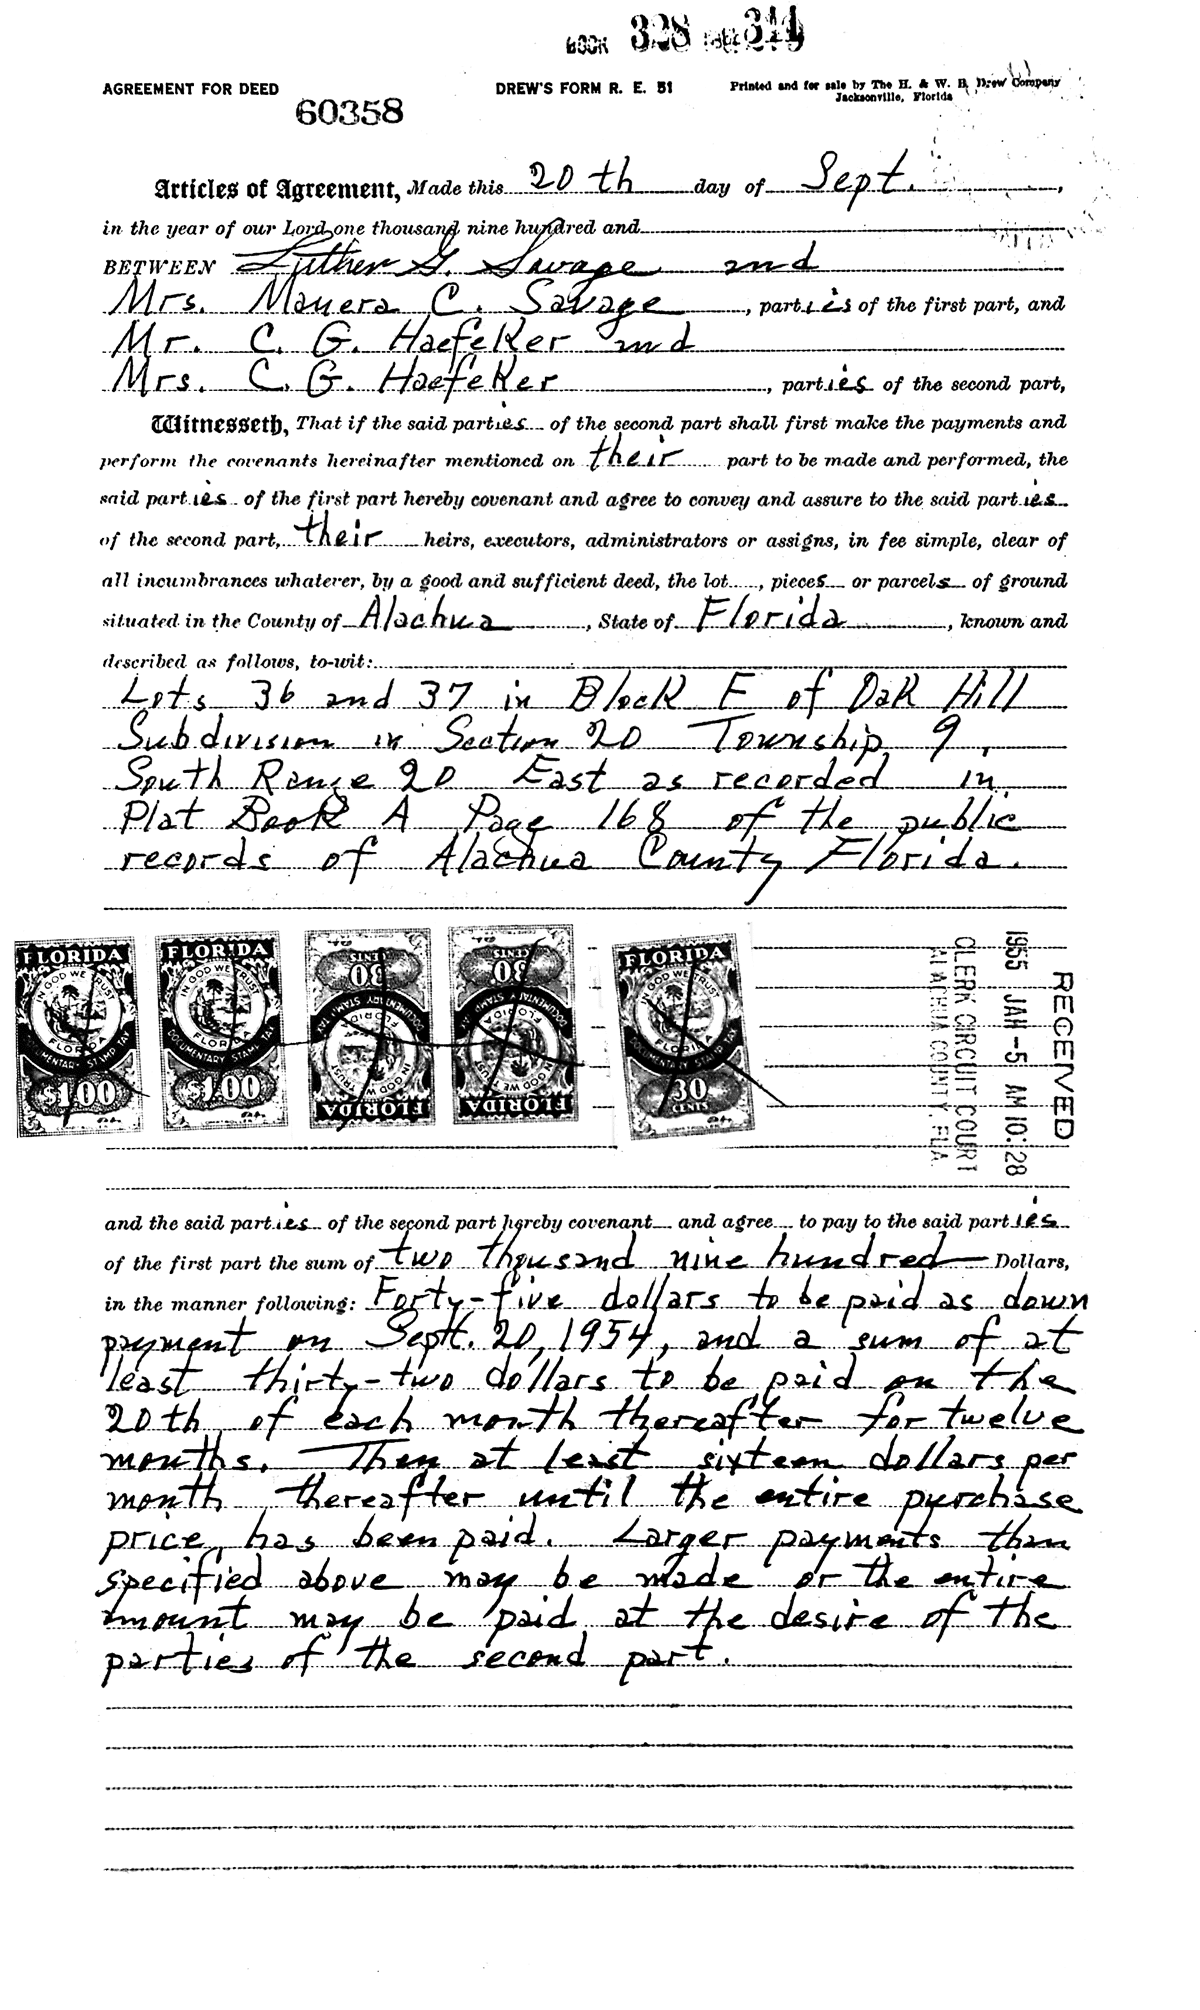 BOOK 328 PAGE 344
AGREEMENT FOR DEED
DREW'S FORM R. E. 51
Printed and for sale by The H. & W. B. Drew Company
Jacksonville, Florida
60358
Articles of Agreement, Made this 20th day of Sept.,
in the year of our Lord one thousand nine hundred and
BETWEEN Luther G. Savage and
Mrs. Manera C. Savage, parties of the first part, and
Mr. C. G. Haefeker and
Mrs. C. G. Haefeker, parties of the second part,
Witnesseth, That if the said parties of the second part shall first make the payments and
perform the covenants hereinafter mentioned on their part to be made and performed, the
said parties of the first part hereby covenant and agree to convey and assure to the said parties
of the second part, their heirs, executors, administrators or assigns, in fee simple, clear of
all incumbrances whatever, by a good and sufficient deed, the lot, pieces or parcels of ground
situated in the County of Alachua, State of Florida, known and
described as follows, to-wit:
Lots 36 and 37 in Block E of Oak Hill
Subdivision in Section 20 Township 9,
South Range 20 East as recorded in
Plat Book A Page 168 of the public
records of Alachua County Florida.
FLORIDA
IN GOD WE TRUST
FLORIDA
DOCUMENTARY STAMP TAX
$1.00
FLORIDA
IN GOD WE TRUST
FLORIDA
DOCUMENTARY STAMP TAX
$1.00
30
CENTS
DOCUMENTARY STAMP TAX
FLORIDA
IN GOD WE TRUST
FLORIDA
30
CENTS
DOCUMENTARY STAMP TAX
FLORIDA
IN GOD WE TRUST
FLORIDA
FLORIDA
IN GOD WE TRUST
FLORIDA
DOCUMENTARY STAMP TAX
30
CENTS
RECEIVED
1955 JAN -5 AM 10:28
CLERK CIRCUIT COURT
ALACHUA COUNTY, FLA.
and the said parties of the second part hereby covenant and agree to pay to the said parties
of the first part the sum of two thousand nine hundred Dollars,
in the manner following: Forty-five dollars to be paid as down
payment on Sept. 20, 1954, and a sum of at
least thirty-two dollars to be paid on the
20th of each month thereafter for twelve
months. Then at least sixteen dollars per
month thereafter until the entire purchase
price has been paid. Larger payments than
specified above may be made or the entire
amount may be paid at the desire of the
parties of the second part.